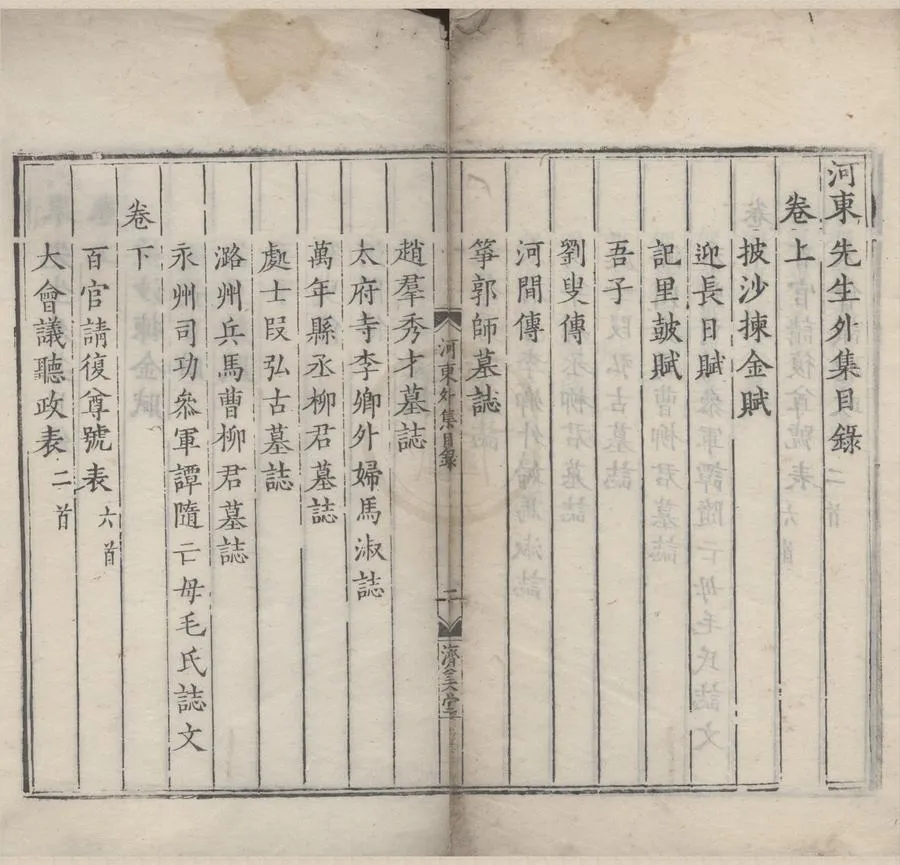 河東先生外集目錄
卷上
披沙揀金賦
迎長日賦
記里鼓賦
吾子
劉叟傳
河間傳
箏郭師墓誌
河東外集目錄
二
濟美堂
趙羣秀才墓誌
太府寺李卿外婦馬淑誌
萬年縣丞柳君墓誌
處士段弘古墓誌
潞州兵馬曹柳君墓誌
永州司功叅軍譚隨亡母毛氏誌文
卷下
百官請復尊號表 六首
大會議聽政表 二首